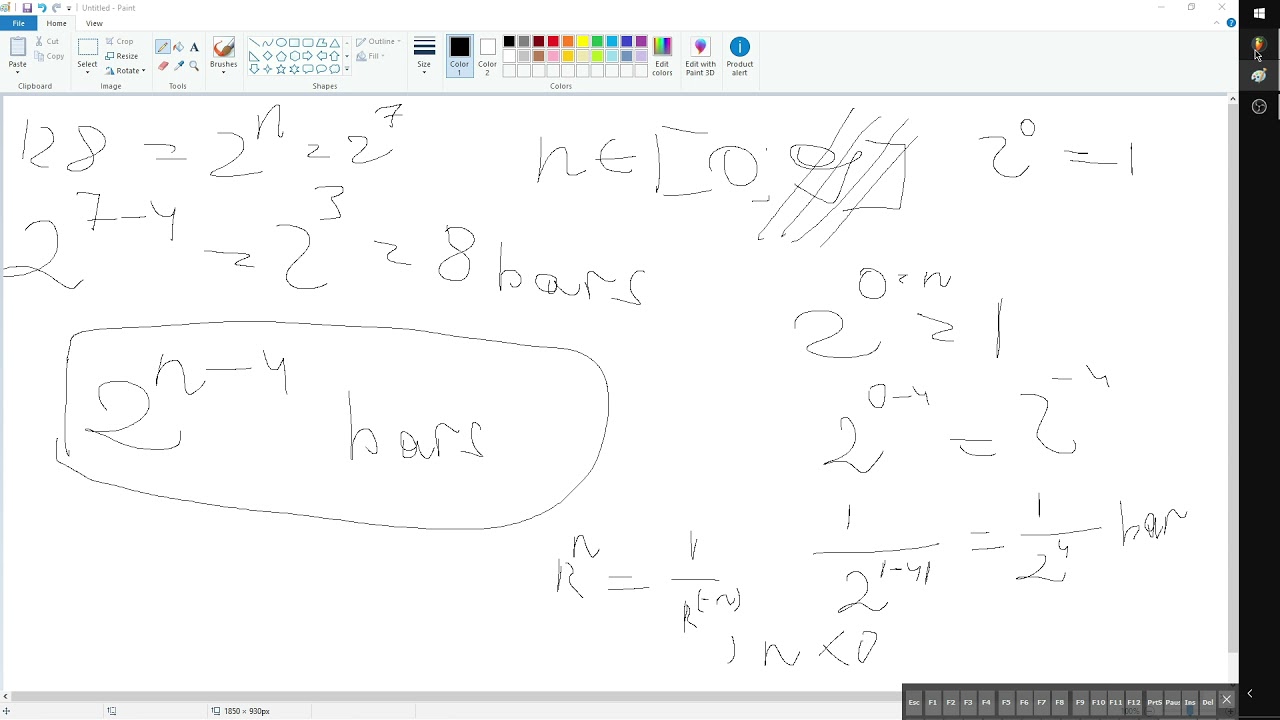 Untitled - Paint
File Home View
Paste Cut Copy Clipboard
Select Crop Resize Rotate Image
Tools
Brushes
Outline Fill Shapes
Size
Color 1 Color 2 Edit colors Colors
Edit with Paint 3D
Product alert
128 = 2^n = 2^7
n ∈ [0;
2^0 = 1
2^7-4 = 2^3 = 8 bars
2^0=n = 1
2^n-4 bars
2^0-4 = 2^-4
1/2^|-4| = 1/2^4 bar
k^n = 1/k^(-n) , n < 0
1850 × 930px
Esc F1 F2 F3 F4 F5 F6 F7 F8 F9 F10 F11 F12 PrtS Paus Ins Del